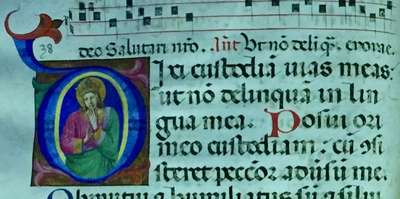 38
deo Salutari nr̄o. Ānt Vt nō deliq̄. evovae.
Dixi custodiā uias meas:
ut nō delinquā in lin
gua mea. Posui ori
meo custodiam: cū ꝯsi
steret peccōr aduersū me.
Obmutui & humiliatus sū & silui